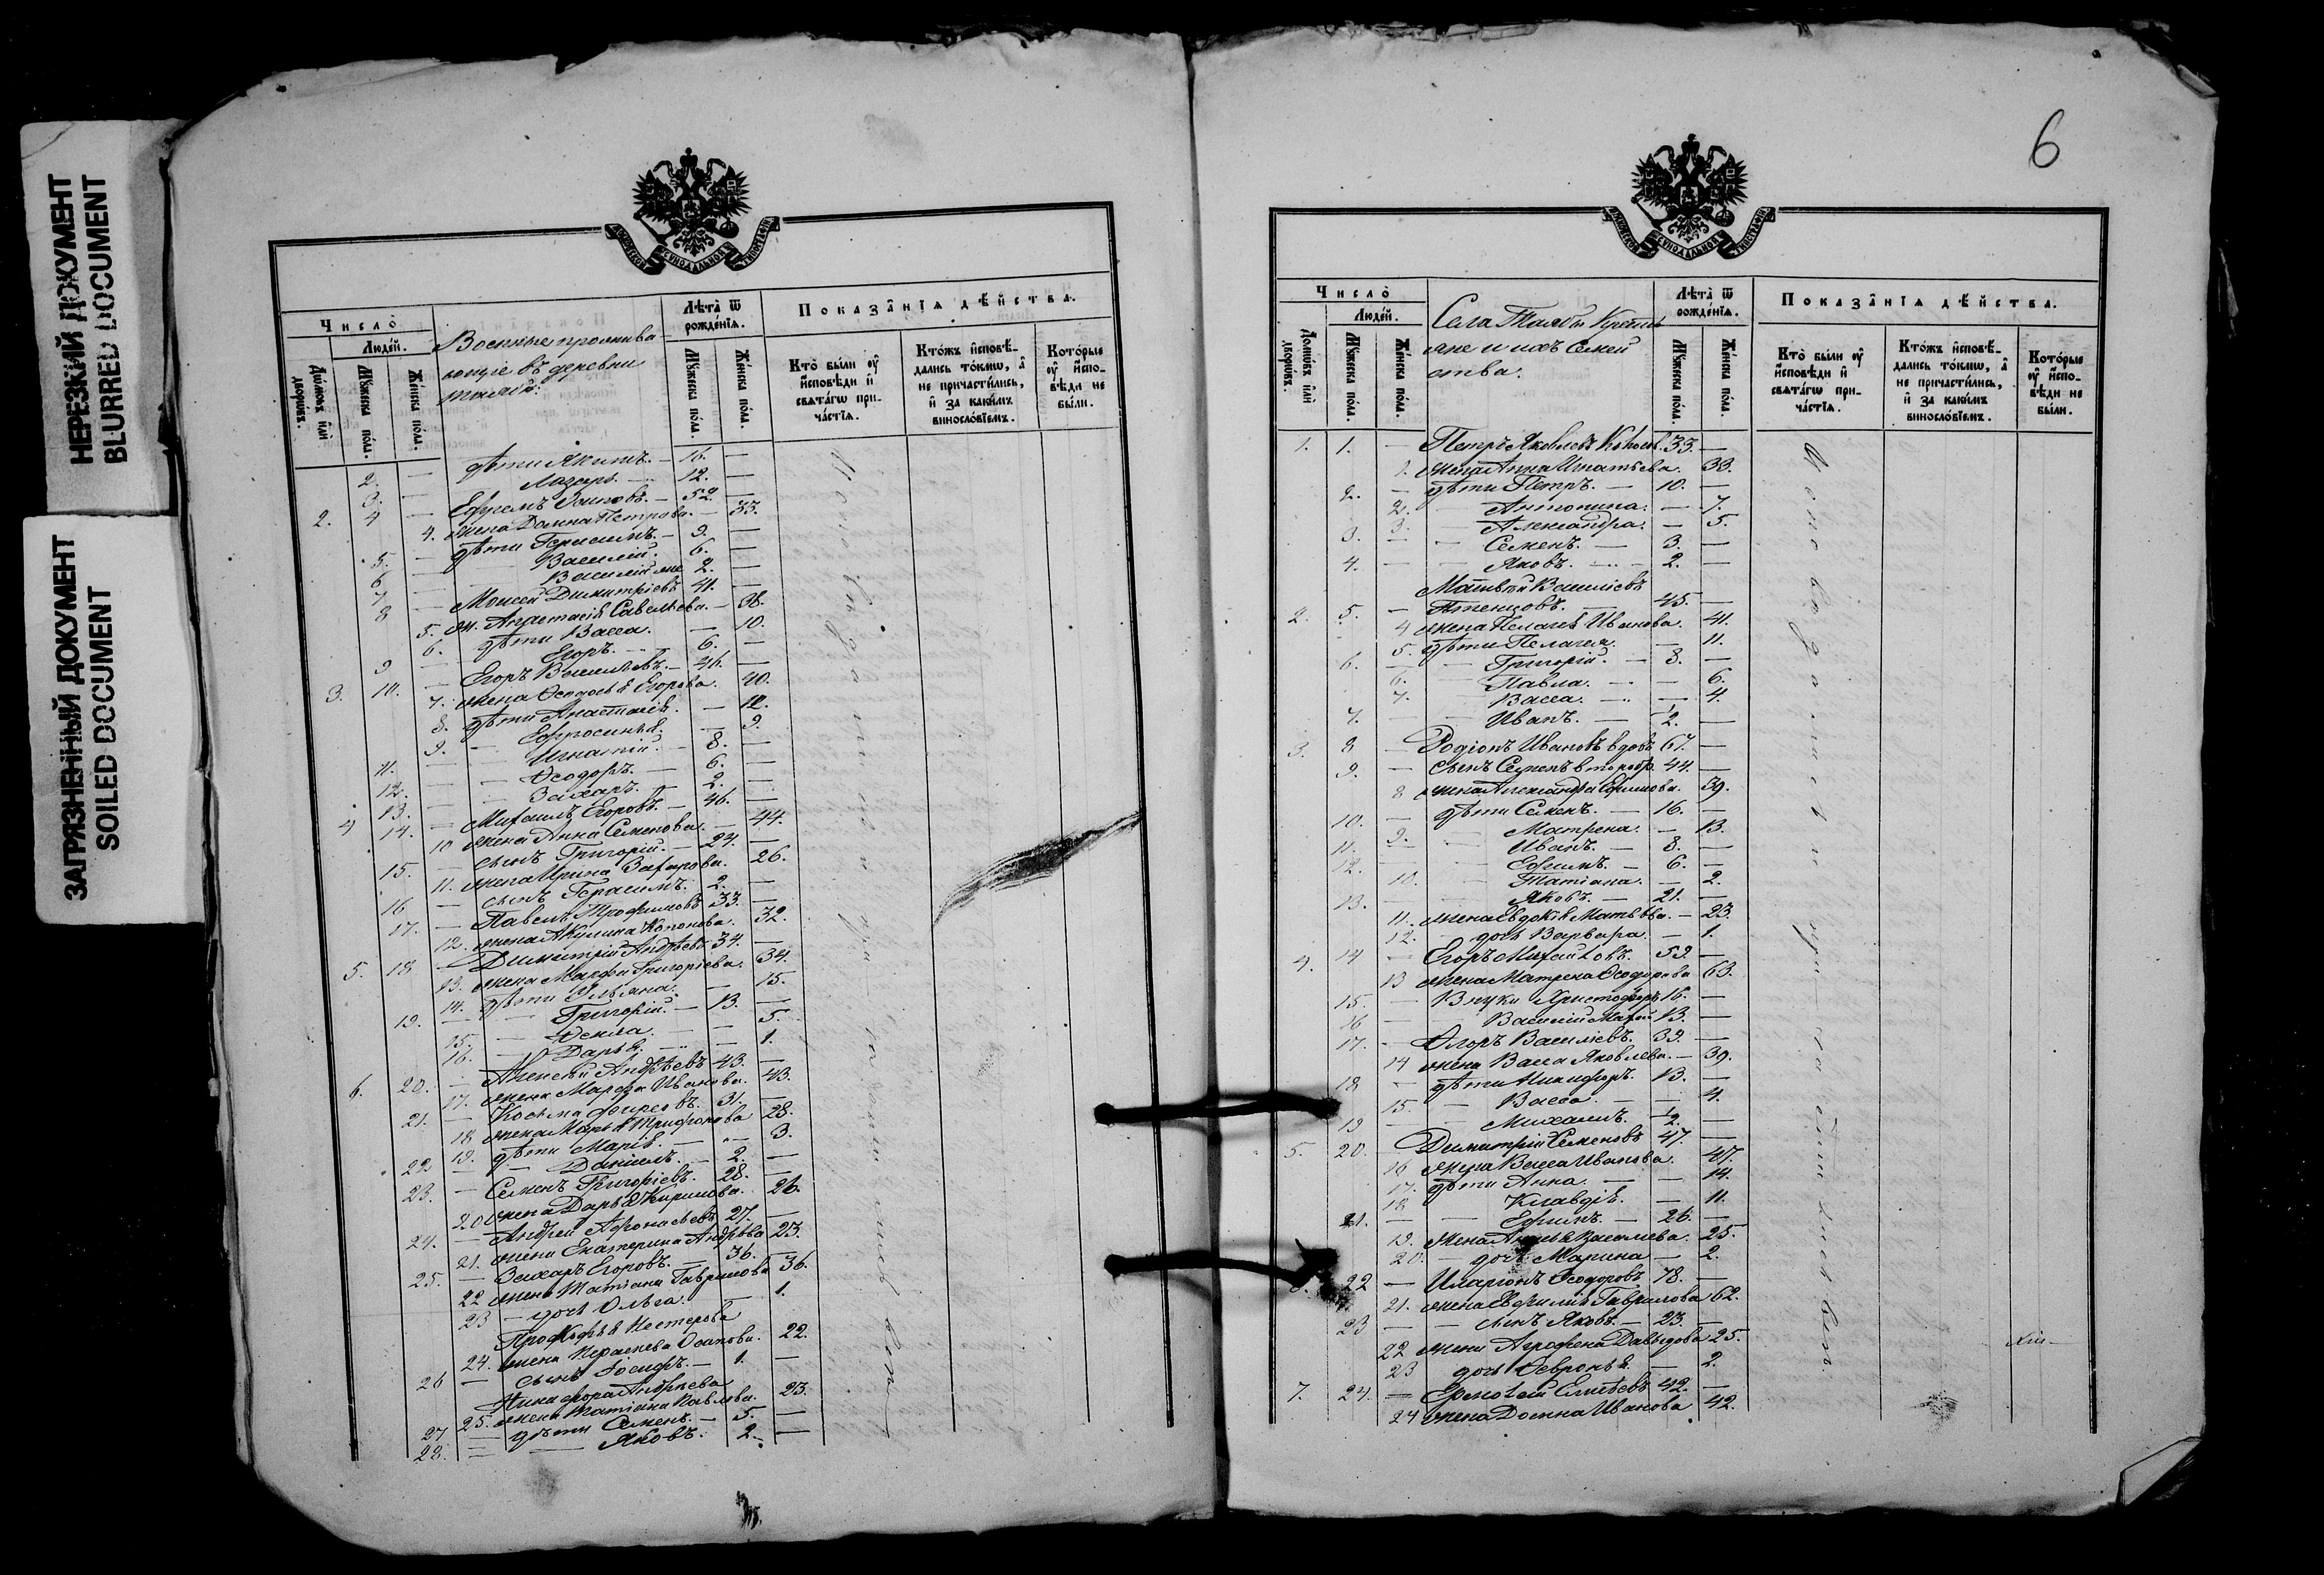 НЕРЕЗКИЙ ДОКУМЕНТ
BLURRED DOCUMENT
ЗАГРЯЗНЕННЫЙ ДОКУМЕНТ
SOILED DOCUMENT
МОСКОВСКОЙ СѴНОДАЛЬНОЙ ТИПОГРАФІИ
Число̀
Людє́й.
Домѡ́въ и҆лѝ дворѡ́въ.
Мꙋ́жеска по́ла.
Же́нска по́ла.
Военные прожива
ющіе въ деревни
Лѣта̀ ѿ рожде́нїѧ.
Мꙋ́жеска по́ла.
Же́нска по́ла.
Показа̑нїѧ дѣ́йства.
Кто̀ бы́ли ᲂу҆ и҆сповѣди и҆ свѧта́гѡ прича́стїѧ.
Кто́жъ и҆сповѣ́дались то́кмѡ, а҆ не причасти́лись, и҆ за каки́мъ винословїемъ.
Кото́рые ᲂу҆ и҆сповѣди не бы́ли.
2. — дѣти Якимъ. — 16. —
3. — Лазарь. — 12. —
2. 4 — Ефремъ Осиповъ. — 52. —
4. жена Домна Петрова. — 33.
5. — дѣти Герасимъ. — 9. —
6 — Василій. 6. —
7 — Василій же 2. —
8 — Моисей Димитріевъ 41. —
5. ж. Анастасія Савельева. — 38.
6. дѣти Васса. — 10.
9 — Егоръ. — 6. —
3. 10. — Егоръ Васильевъ. — 46. —
7. жена Ѳеодосья Егорова. 40.
8. дѣти Анастасія. — 12.
9. — Ефросинья. — 9.
11. — Игнатій. — 8. —
12. — Ѳеодоръ. — 6. —
13. — Захаръ. — 2. —
4 14. — Михаилъ Егоровъ. — 46. —
10 жена Анна Семенова. — 44.
15. — сынъ Григорій. — 24. —
11. жена Ирина Захарова. 26.
16 — сынъ Герасимъ. 2. —
17. — Павелъ Трофимовъ 33. —
12. жена Акулина Кононова. 32.
5. 18 — Димитрій Андреевъ 34. —
13. жена Марфа Григоріева. 34.
14. дѣти Ульяна. — 15.
19. — Григорій. — 13. —
15. — Ѳекла. — 5.
16. — Дарья. — 1.
6. 20. — Алексѣй Андреевъ 43. —
17. жена Марфа Иванова. 43.
21. — Косьма Фирсовъ. 31. —
18 жена Марья Трифонова 28.
19. дѣти Марія. — 3.
22 — Даніилъ. — 2. —
23. — Семенъ Григоріевъ. 28. —
20 жена Дарья Кирилова. 26.
24. — Андрей Афонасьевъ 27. —
21. жена Екатерина Андрева 23.
25. — Захаръ Егоровъ. — 36. —
22 жена Татіана Гаврилова 36.
23 — дочь Ольга. — 1.
Прокофья Нестерова
24. жена Параскева Осипова. 22.
26 — сынъ Іосифъ. — 1. —
Никифора Андреева
25. жена Татіана Павлова. 23.
27 — дѣти Семенъ. — 5. —
28. — Яковъ. 2. —
6
МОСКОВСКОЙ СѴНОДАЛЬНОЙ ТИПОГРАФІИ
Число̀
Людє́й.
Домѡ́въ и҆лѝ дворѡ́въ.
Мꙋ́жеска по́ла.
Же́нска по́ла.
Села Таябы Крестья
не и ихъ Семей
ства.
Лѣта̀ ѿ рожде́нїѧ.
Мꙋ́жеска по́ла.
Же́нска по́ла.
Показа̑нїѧ дѣ́йства.
Кто̀ бы́ли ᲂу҆ и҆сповѣди и҆ свѧта́гѡ прича́стїѧ.
Кто́жъ и҆сповѣ́дались то́кмѡ, а҆ не причасти́лись, и҆ за каки́мъ винословїемъ.
Кото́рые ᲂу҆ и҆сповѣди не бы́ли.
1. 1. — Петръ Яковлевъ 33. —
1. жена Анна Игнатьева. 33.
2. — дѣти Петръ. — 10. —
2. — Антонина. — 7.
3. — Александра. — 5.
3. — Семенъ. — 3. —
4. — Яковъ. — 2. —
Матвѣй Василіевъ
2. 5. — Птенцовъ. — 45. —
4 жена Пелагея Иванова. 41.
5. дѣти Пелагея. — 11.
6. — Григорій. — 8. —
6. — Павла. — 6.
7. — Васса. — 4.
7. — Иванъ. — ½. —
3. 8 — Родіонъ Ивановъ вдовъ 67. —
9. — сынъ Семенъ второбр. 44. —
8 жена Александра Ефимова. 39.
10. — дѣти Семенъ. — 16. —
9. — Матрена. — 13.
11. — Иванъ. — 8. —
12. — Ефимъ. — 6. —
10. — Татіана. — 2.
13. — Яковъ. — 21. —
11. жена Евдокія Матвѣва. — 23.
12. — дочь Варвара. — 1.
4. 14 — Егоръ Михайловъ. 59. —
13 жена Матрена Ѳеодорова 63.
15. — Внуки Христофоръ 16. —
16 — Василій 13. —
17. — Егоръ Василіевъ. 39. —
14 жена Васса Яковлева. — 39.
18 — дѣти Никифоръ. 13. —
15. — Васса. — 4.
19 — Михаилъ. — ½. —
5. 20. — Димитрій Семеновъ 47. —
16 жена Васса Иванова. 47.
17. дѣти Анна. — 14.
18 Клавдія. — 11.
21. — Ефимъ. — 26. —
19. жена Анисья Васильева. 25.
20. — дочь Марина — 2.
6. 22 — Иларіонъ Ѳеодоровъ 78. —
21. жена Ефимія Гаврилова 62.
23 — сынъ Яковъ. — 23. —
22 жена Агрофена Давыдова 25.
23 дочь Февронья. — 2.
7. 24. — Ермолай Елисѣевъ 42. —
24 жена Домна Иванова 42.